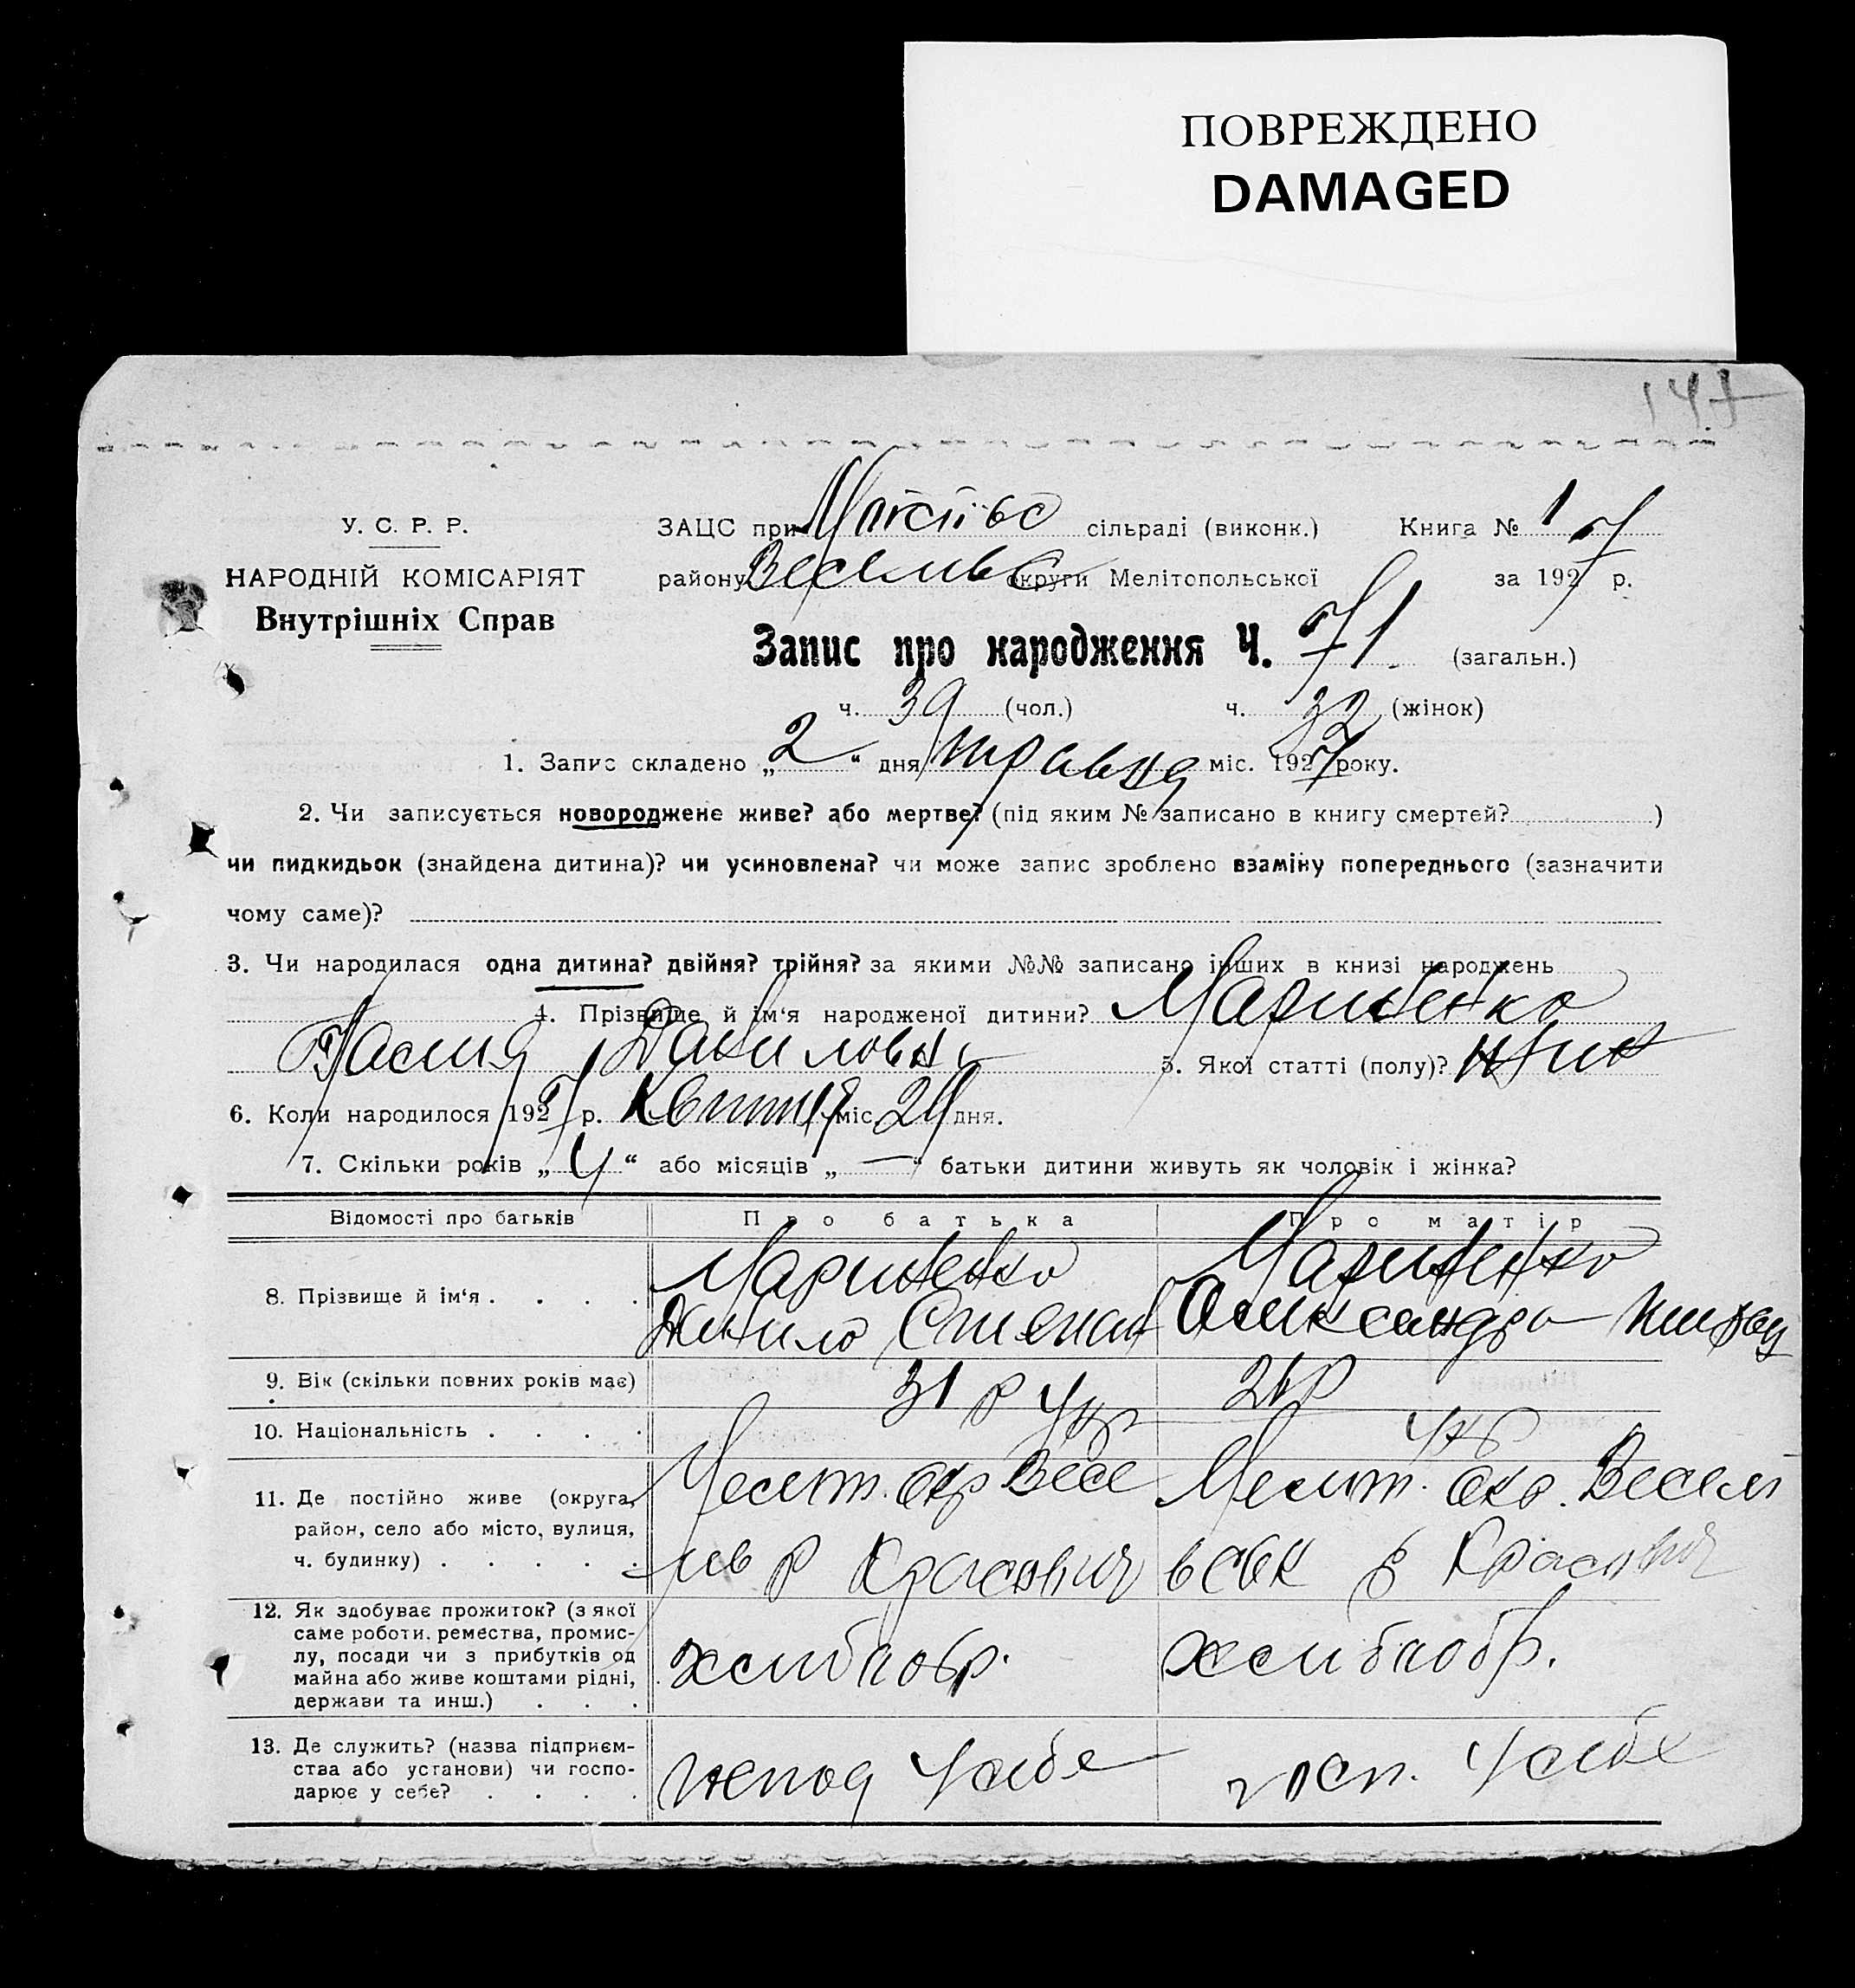 ПОВРЕЖДЕНО
DAMAGED
147
У. С. Р. Р.
НАРОДНІЙ КОМІСАРІЯТ
Внутрішніх Справ
ЗАЦС при сільраді (виконк.) Книга № 1
району округи Мелітопольської за 1927 р.
Запис про народження Ч. 71 (загальн.)
ч. 39 (чол.) ч. 32 (жінок)
1. Запис складено „ 2 “ дня травня міс. 1927 року.
2. Чи записується новороджене живе? або мертве? (під яким № записано в книгу смертей? )
чи пидкидьок (знайдена дитина)? чи усиновлена? чи може запис зроблено взаміну попереднього (зазначити
чому саме)?
3. Чи народилася одна дитина? двійня? трійня? за якими №№ записано інших в книзі народжень
4. Прізвище й ім‘я народженої дитини? Мариненко
Тасия Даниловн 5. Якої статті (полу)? жін
6. Коли народилося 1927 р. Квітня міс. 24 дня.
7. Скільки років „ 4 “ або місяців „ — “ батьки дитини живуть як чоловік і жінка?
Відомості про батьків Про батька Про матір
8. Прізвище й ім‘я . . . . Мариненко Мариненко
Данило Степан Александра
9. Вік (скільки повних років має) 31 р 21 р
10. Національність . . . . Укр Укр
11. Де постійно живе (округа, Меліт. окр Весе Меліт. окр. Весел
район, село або місто, вулиця,
ч. будинку) . . . . . лів р
12. Як здобуває прожиток? (з якої
саме роботи, ремества, промис-
лу, посади чи з прибутків од хлибпобр. хлибпобр.
майна або живе коштами рідні,
держави та инш.) . . .
13. Де служить? (назва підприєм-
ства або установи) чи госпо- у себе госп. у себе
дарює у себе? . . . .